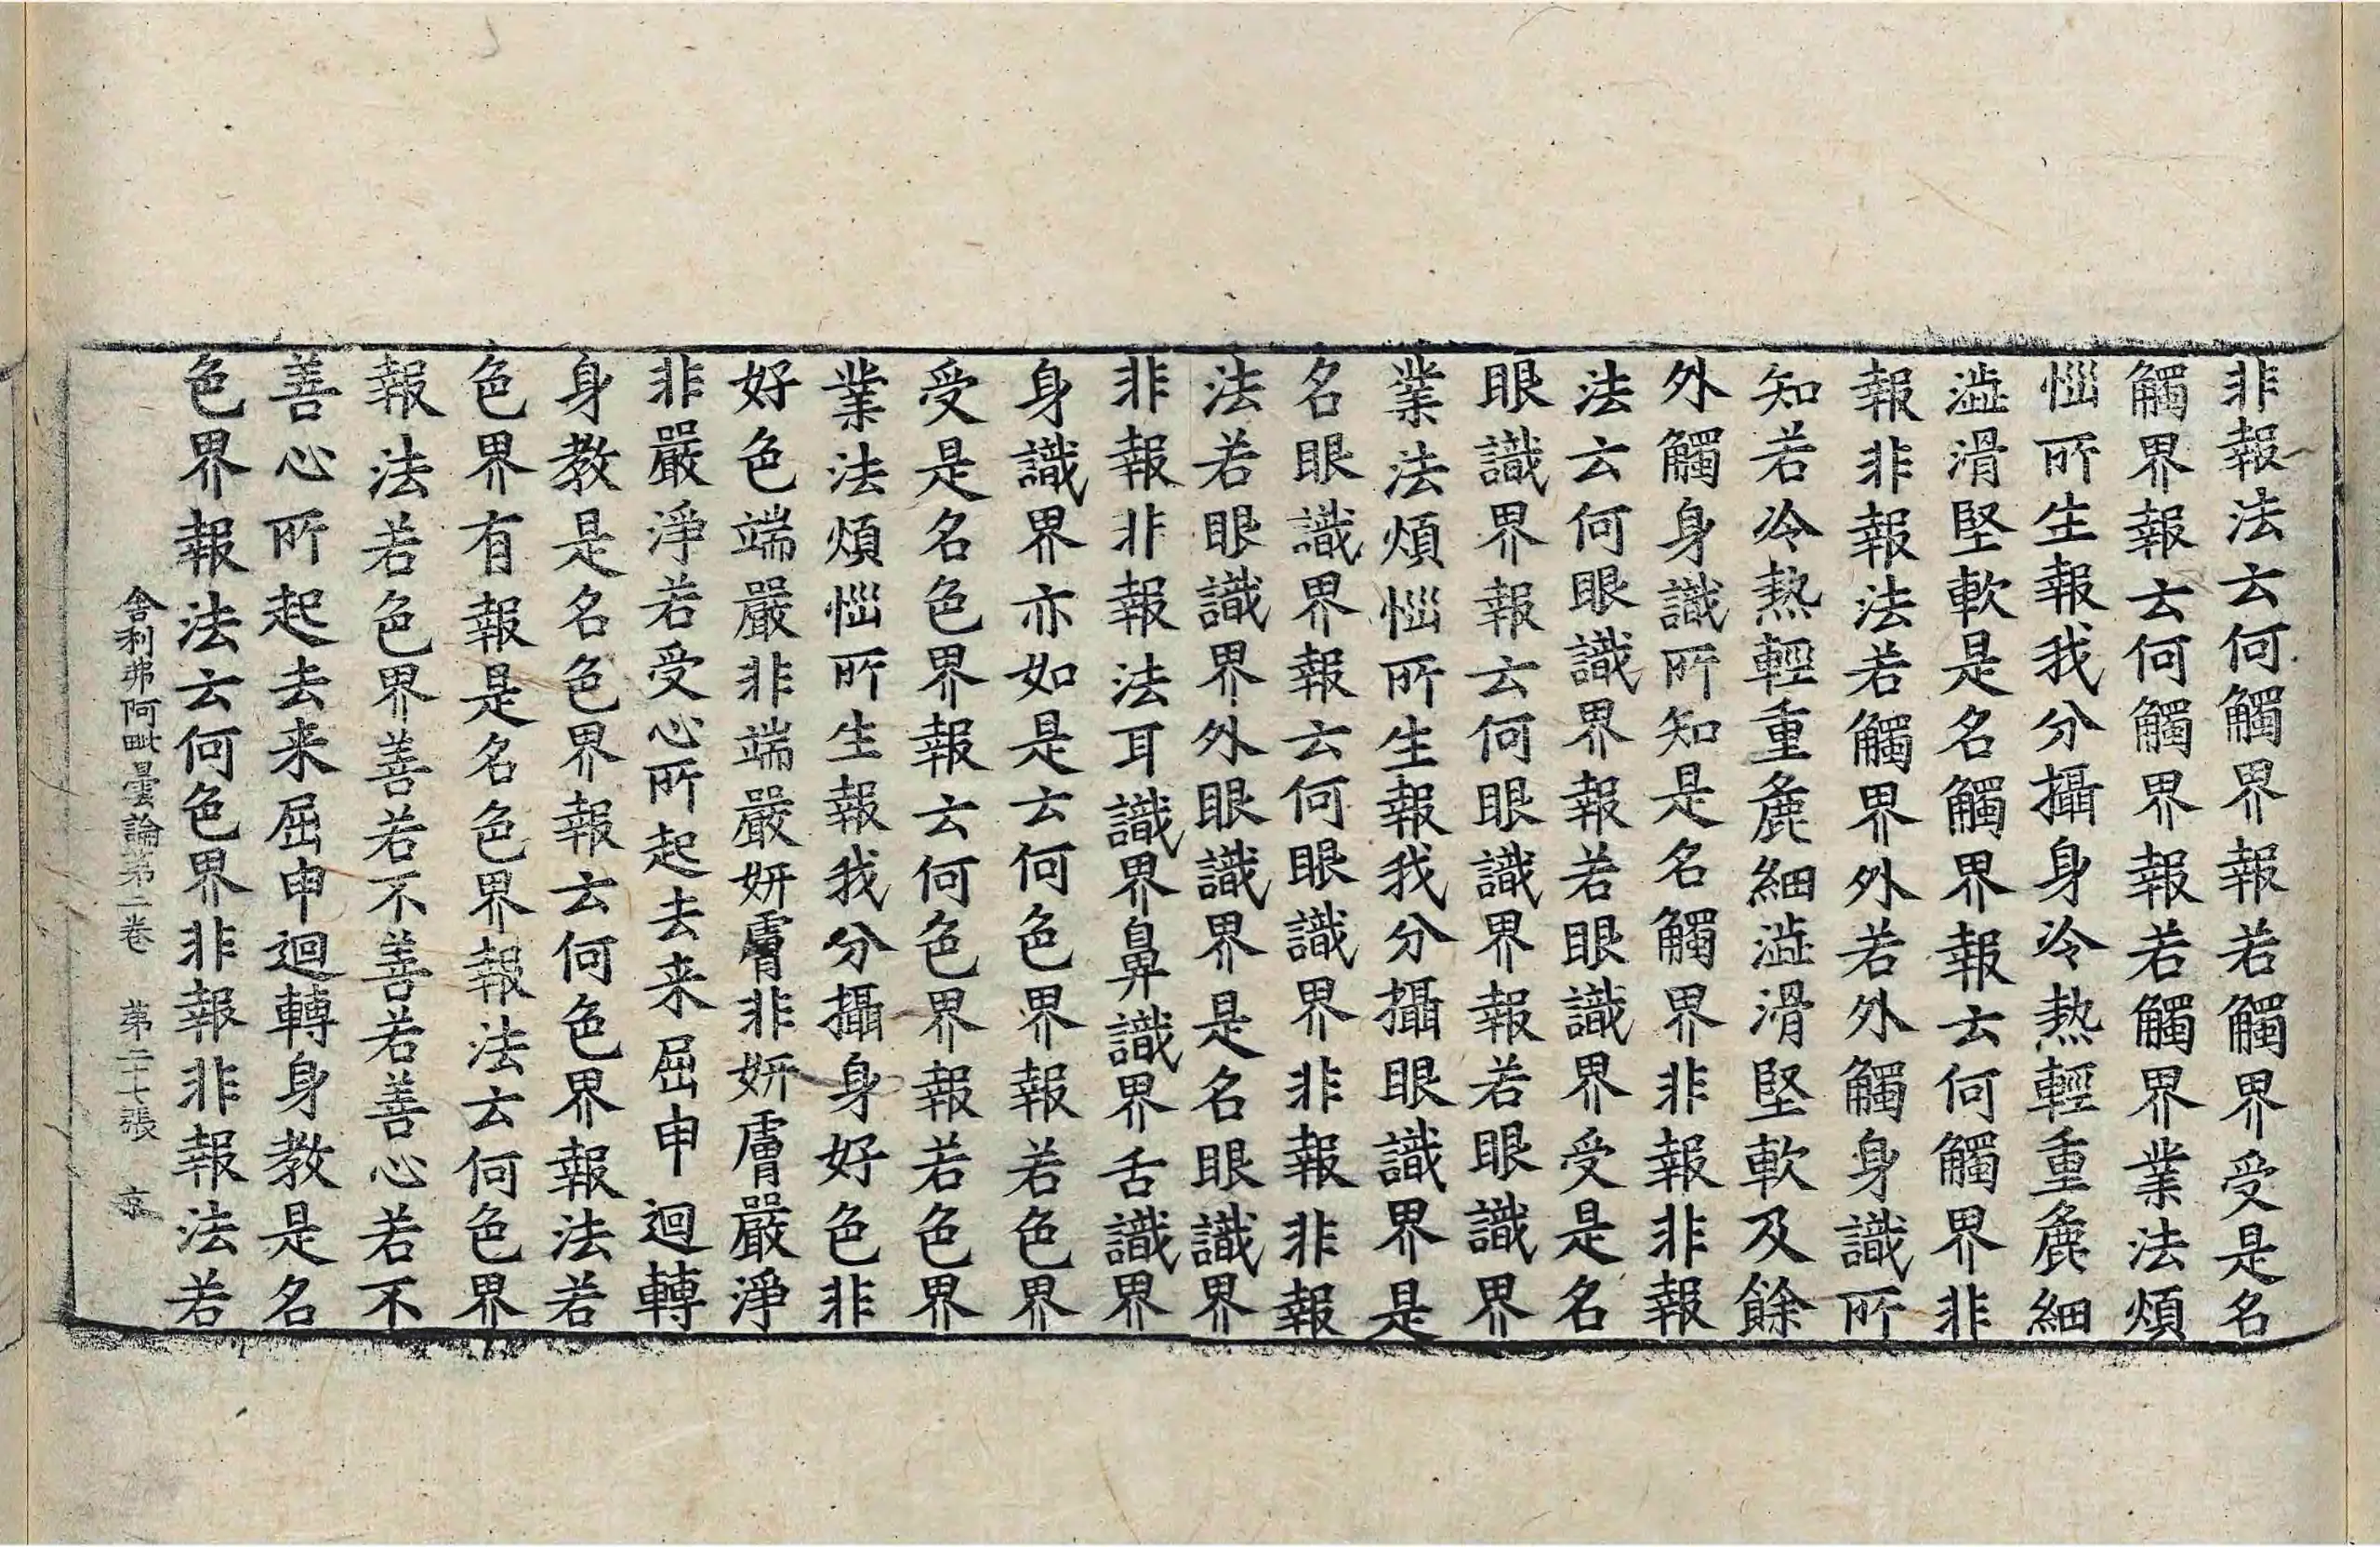 非報法云何觸界報若觸界受是名
觸界報云何觸界報若觸界業法煩
惱所生報我分攝身冷熱輕重麁細
澁滑堅軟是名觸界報云何觸界非
報非報法若觸界外若外觸身識所
知若冷熱輕重麁細澁滑堅軟及餘
外觸身識所知是名觸界非報非報
法云何眼識界報若眼識界受是名
眼識界報云何眼識界報若眼識界
業法煩惱所生報我分攝眼識界是
名眼識界報云何眼識界非報非報
法若眼識界外眼識界是名眼識界
非報非報法耳識界鼻識界舌識界
身識界亦如是云何色界報若色界
受是名色界報云何色界報若色界
業法煩惱所生報我分攝身好色非
好色端嚴非端嚴妍膚非妍膚嚴淨
非嚴淨若受心所起去来屈申迴轉
身教是名色界報云何色界報法若
色界有報是名色界報法云何色界
報法若色界善若不善若善心若不
善心所起去来屈申迴轉身教是名
色界報法云何色界非報非報法若
舍利弗阿毗曇論第二卷 第二十七張 京